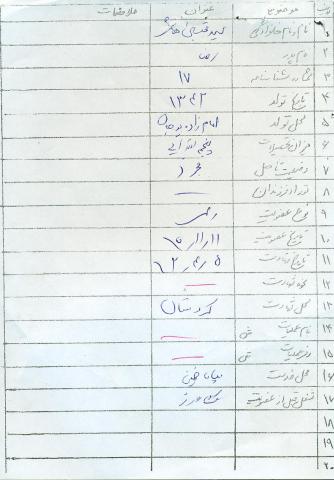 ردیف موضوع عنوان ملاحظات
۱ نام و نام خانوادگی سید مجتبی هاشمی
۲ نام پدر رضا
۳ شماره شناسنامه ۱۷
۴ تاریخ تولد ۱۳۴۲
۵ محل تولد امام زاده
۶ میزان تحصیلات پنجم ابتدایی
۷ وضعیت تاهل مجرد
۸ تعداد فرزندان —
۹ نوع عضویت رسمی
۱۰ تاریخ عضویت
۱۱ تاریخ شهادت
۱۲ نحوه شهادت —
۱۳ محل شهادت کردستان
۱۴ نام عملیات ش —
۱۵ رمز عملیات ش —
۱۶ محل خدمت
۱۷ شغل قبل از عضویت کشاورز
۱۸
۱۹
۲۰